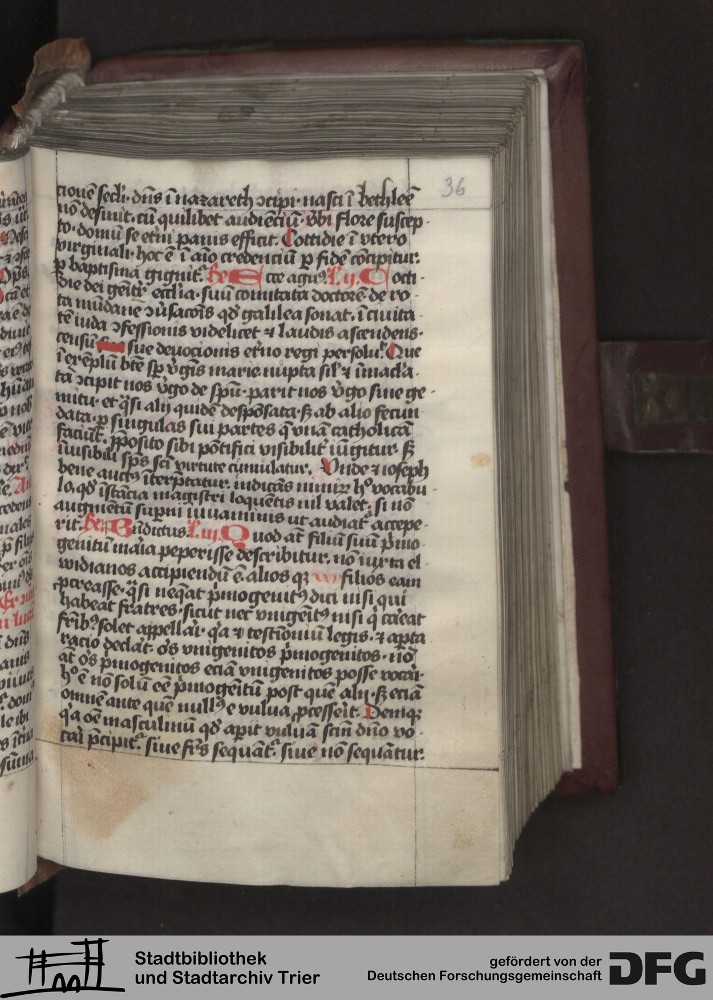 36
cionē secl'i. dn̄s ī nazareth ↄcipi. nasci ī bethleē
nō desinit. cū quilibet audienciū. v̄bi flore suscep
to. domū se et̄ni panis efficit. Cottidie ī vtero
virginali. hoc ē ī aīo credenciū ꝑ fidē cōcipitur.
ꝑ baptisma gignit᷑. Ecce agn9. l. ij. Coti
die dei genit᷑ eccl'ia. suū comitata doctorē. de ro
ta mūdane ↄu̇sacōis qd̄ galilea sonat. ī ciuita
tē iuda ↄfessionis videlicet ⁊ laudis ascendens.
censū sue deuocionis et̄no regi persolu᷑. Que
ī exēplū bt̄e sꝑ v̄gīs marie nupta sil' ⁊ īmacl'a
ta ↄcipit nos v̄go de spū. parit nos v̄go sine ge
mitu. et q̄si alij quidē despōsata. sꝫ ab alio fecun
data. ꝑ singulas sui partes q̄ vnā catholicā
faciūt. ꝓposito sibi pōtifici visibilit᷑ iūgitur. sꝫ
īuisibili sp̄s sc̄i virtute cumulatur. Vnde ⁊ ioseph
bene auct9 īterp̄tatur. indicās
lo. qd̄ īstācia magistri loquentis nil valet. si nō
augmentū supni iuuaminis ut audiat᷑ accepe
rit. Bn̄dictus. l. iij. Quod at̄ filiū suū p̄mo
genitū maria peperisse describitur. nō iuxta el
vidianos accipiendū ē. alios qꝫ filios eam
ꝓcreasse. q̄si neq̄at p̄mogenit9 dici nisi qui
habeat fratres. sicut nec vnigenit9 nisi q̄ careat
frīb9 solet appellari. q̄a ⁊ testimoniū legis. ⁊ aꝑta
racio declat᷑. oēs vnigenitos p̄mogenitos. nō
at̄ oēs p̄mogenitos eciā vnigenitos posse vocari.
h9 ē nō solū eē p̄mogēitū post quē alij. sꝫ eciā
omnē ante quē null9 e vulua ꝓcesserit. Deniqꝫ
q̄a oē masculinū qd̄ aꝑit vuluā sctm̄ dn̄o vo
cari p̄cipit᷑. siue fr̄s sequant᷑. siue nō sequātur.
Stadtbibliothek
und Stadtarchiv Trier
gefördert von der
Deutschen Forschungsgemeinschaft
DFG